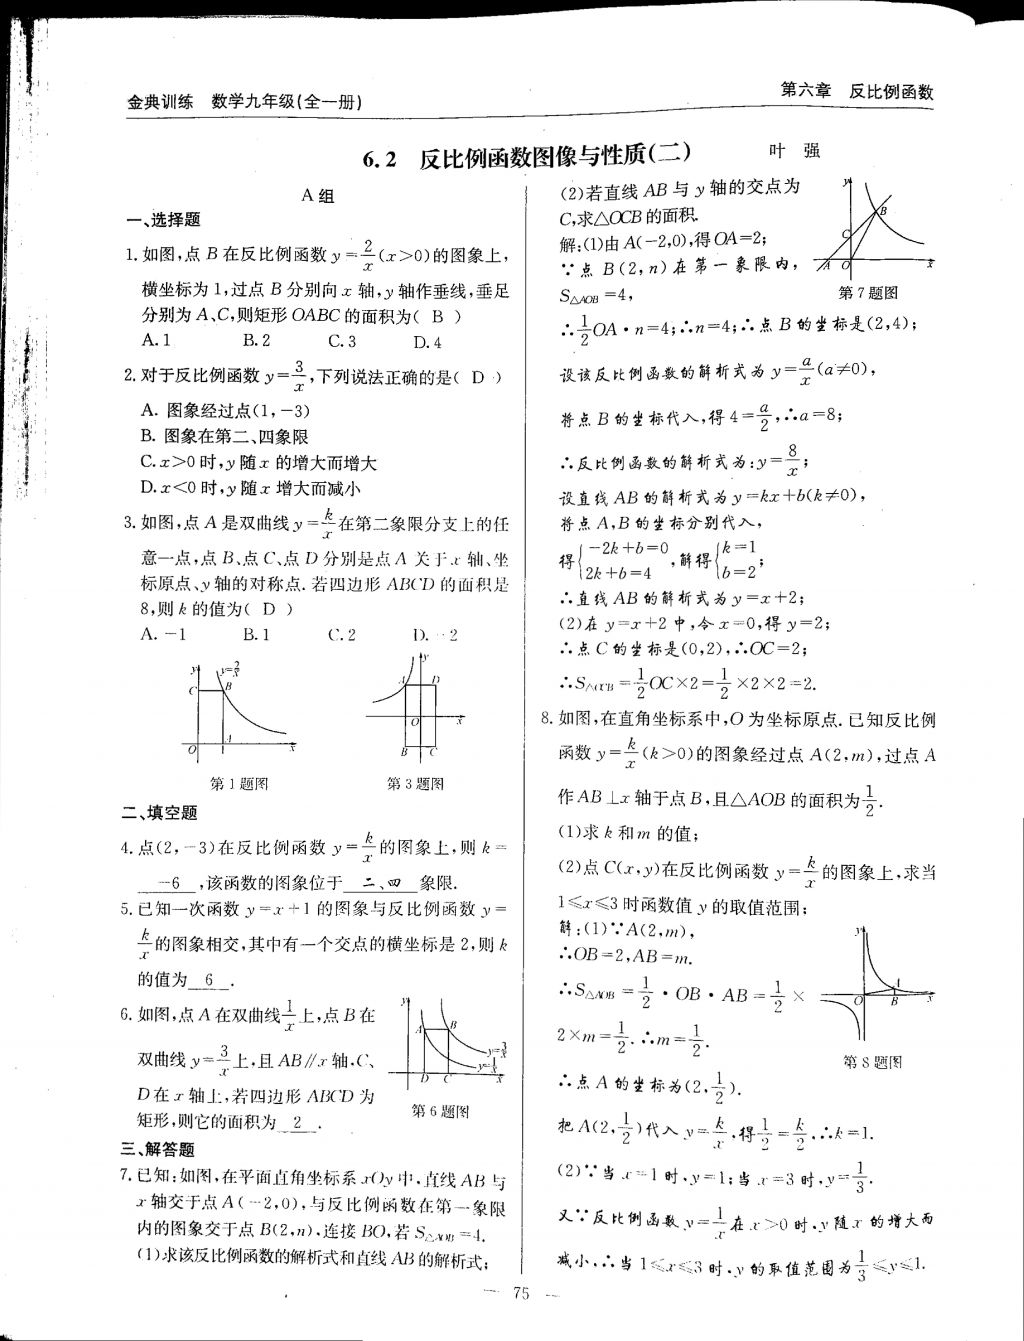 金典训练 数学九年级(全一册)
第六章 反比例函数
6.2 反比例函数图像与性质(二)
叶 强
A组
一、选择题
1.如图,点B在反比例函数y=2/x(x>0)的图象上,
横坐标为1,过点B分别向x轴,y轴作垂线,垂足
分别为A、C,则矩形OABC的面积为( B )
A.1 B.2 C.3 D.4
2.对于反比例函数y=3/x,下列说法正确的是( D )
A. 图象经过点(1,-3)
B. 图象在第二、四象限
C.x>0时,y随x的增大而增大
D.x<0时,y随x增大而减小
3.如图,点A是双曲线y=k/x在第二象限分支上的任
意一点,点B、点C、点D分别是点A关于x轴、坐
标原点、y轴的对称点.若四边形ABCD的面积是
8,则k的值为( D )
A.-1 B.1 C.2 D.-2
y
y=2/x
C
B
A
O
1
x
第1题图
y
A
D
O
x
B
C
第3题图
二、填空题
4.点(2,-3)在反比例函数y=k/x的图象上,则k=
-6,该函数的图象位于 二、四 象限.
5.已知一次函数y=x+1的图象与反比例函数y=
k/x的图象相交,其中有一个交点的横坐标是2,则k
的值为 6 .
6.如图,点A在双曲线1/x上,点B在
双曲线y=3/x上,且AB∥x轴,C、
D在x轴上,若四边形ABCD为
矩形,则它的面积为 2 .
y
A
B
y=3/x
y=1/x
D
C
x
第6题图
三、解答题
7.已知:如图,在平面直角坐标系xOy中,直线AB与
x轴交于点A(-2,0),与反比例函数在第一象限
内的图象交于点B(2,n),连接BO,若S△AOB=4.
(1)求该反比例函数的解析式和直线AB的解析式;
(2)若直线AB与y轴的交点为
C,求△OCB的面积.
y
B
C
A
O
x
第7题图
解:(1)由A(-2,0),得OA=2;
∵点B(2,n)在第一象限内,
S△AOB=4,
∴1/2OA·n=4;∴n=4;∴点B的坐标是(2,4);
设该反比例函数的解析式为y=a/x(a≠0),
将点B的坐标代入,得4=a/2,∴a=8;
∴反比例函数的解析式为:y=8/x;
设直线AB的解析式为y=kx+b(k≠0),
将点A,B的坐标分别代入,
得{-2k+b=0 2k+b=4,解得{k=1 b=2;
∴直线AB的解析式为y=x+2;
(2)在y=x+2中,令x=0,得y=2;
∴点C的坐标是(0,2),∴OC=2;
∴S△OCB=1/2OC×2=1/2×2×2=2.
8.如图,在直角坐标系中,O为坐标原点.已知反比例
函数y=k/x(k>0)的图象经过点A(2,m),过点A
作AB⊥x轴于点B,且△AOB的面积为1/2.
(1)求k和m的值;
(2)点C(x,y)在反比例函数y=k/x的图象上,求当
1≤x≤3时函数值y的取值范围;
解:(1)∵A(2,m),
∴OB=2,AB=m.
∴S△AOB=1/2·OB·AB=1/2×
2×m=1/2.∴m=1/2.
y
A
O
B
x
第8题图
∴点A的坐标为(2,1/2).
把A(2,1/2)代入y=k/x,得1/2=k/2,∴k=1.
(2)∵当x=1时,y=1;当x=3时,y=1/3.
又∵反比例函数y=1/x在x>0时,y随x的增大而
减小,∴当1≤x≤3时,y的取值范围为1/3≤y≤1.
— 75 —